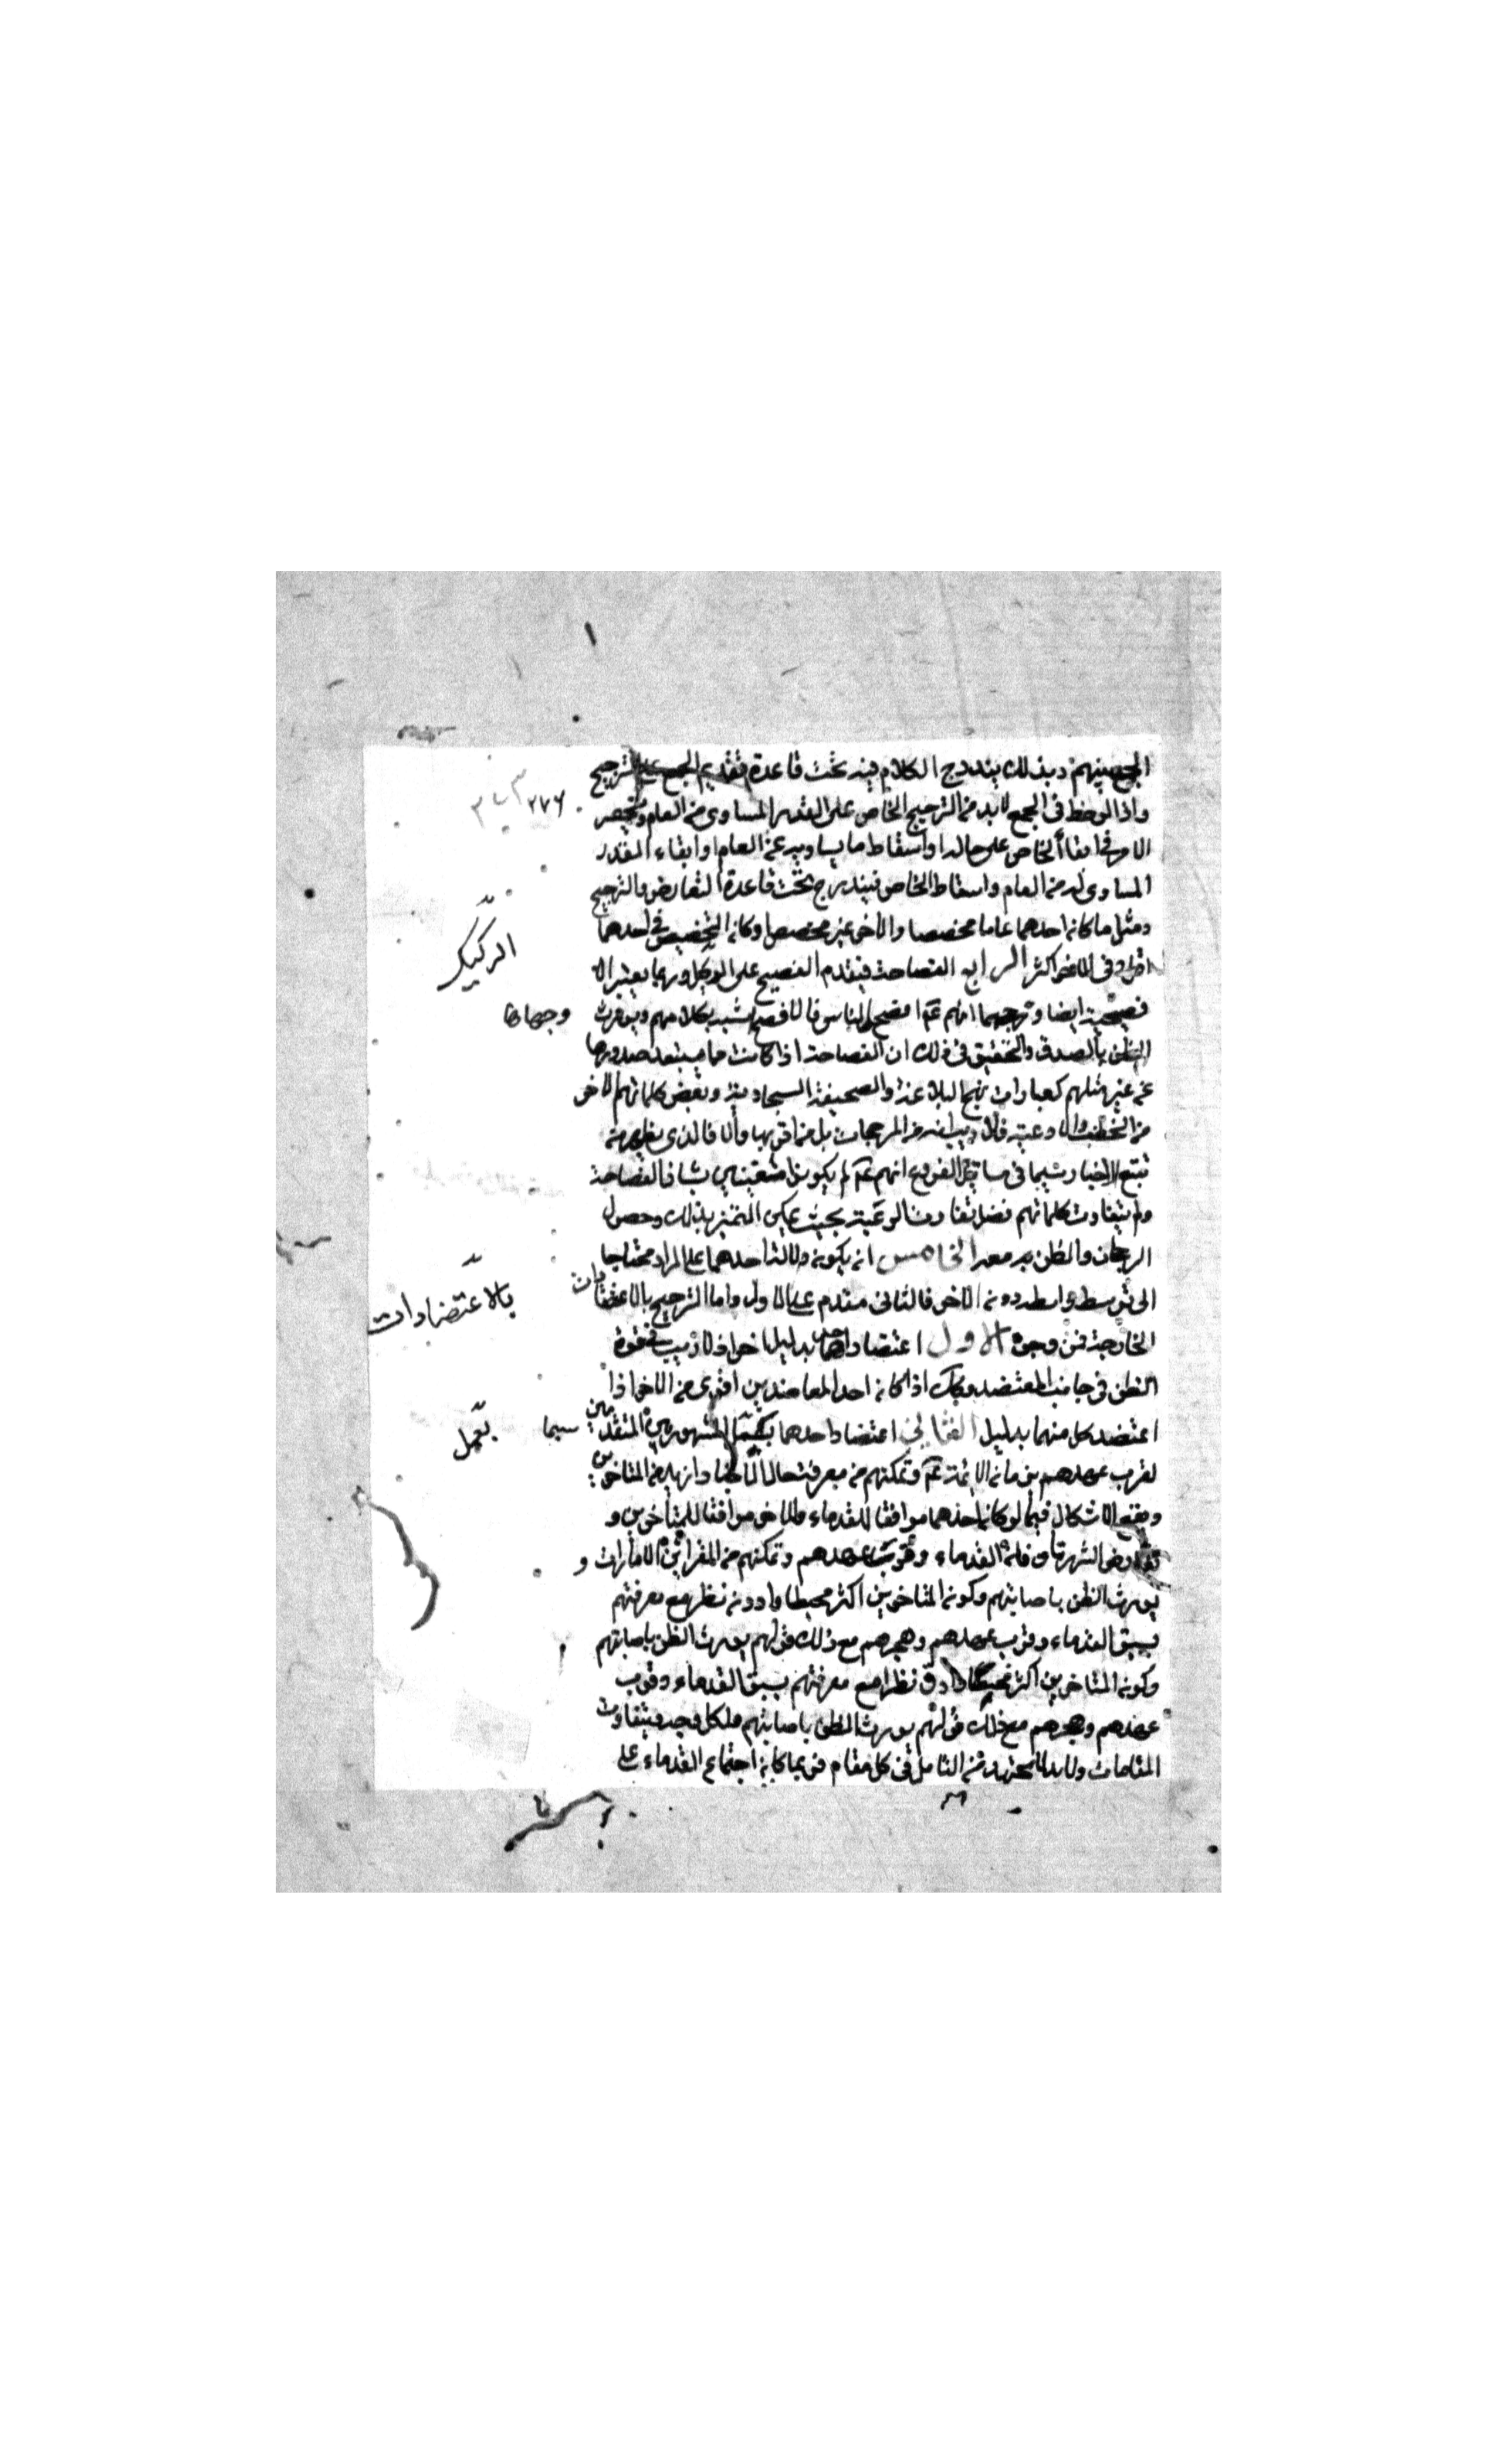 الجمع بينهم وبذلك يندرج الكلام فيه تحت قاعدة تقديم الجمع على الترجيح
واذا لوحظ في الجمع لابد من الترجيح الخاص على القدر المساوي من العام وينحصر
الامر في ابقاء الخاص على حاله واسقاط ما يساويه من العام او ابقاء المقدر
المساوي له من العام واسقاط الخاص فيندرج تحت قاعدة التعارض والترجيح
ومثل ما كان احدهما عاما مخصصا والاخر غير مخصص او كان التخصيص في احدهما
اقل وفي الاخر اكثر الرابع الفصاحة فيقدم الفصيح على الركيك وربما يعتبر الا
فصحية ايضا وترجيحها انهم عم افصح الناس فالافصح اشبه بكلامهم ويورث
الظن بالصدق والتحقيق في ذلك ان الفصاحة اذا كانت مما يستبعد صدورها
عن غير مثلهم كعبارات نهج البلاغة والصحيفة السجادية وبعض كلماتهم الاخر
من الخطب والادعية فلا ريب انه من المرجحات بل من اقويها والا فالذي يظهر من
تتبع الاخبار سيما في مسائل الفروع انهم عم لم يكونوا معتنين بشان الفصاحة
ولم يتفاوت كلماتهم فضل تفاوت الرعية بحيث يمكن التميز بذلك وحصول
الرجحان والظن به معه الخامس ان يكون دلالة احدهما على المراد محتاجا
الى توسط واسطة دون الاخر فالثاني مقدم على الاول واما الترجيح بالاعتضادات
الخارجة فمن وجوه الاول اعتضاد احدهما بدليل اخر اذ لا ريب في قوة
الظن في جانب المعتضد وكك اذا كان احد المعاضدين اقوى من الاخر اذا
اعتضد كل منهما بدليل الثاني اعتضاد احدهما بعمل المشهور من المتقدمين سيما
لقرب عهدهم بزمان الائمة عم وتمكنهم من معرفة حال الاخبار ازيد من المتاخرين
ويقع الاشكال فيما لو كان احدهما موافقا للقدماء والاخر موافقا للمتاخرين و
تعارض الشهرتان فلقدم القدماء وقرب عهدهم وتمكنهم من القرائن والامارات و
يورث الظن باصابتهم وكون المتاخرين اكثر محيطا وادون نظر مع معرفتهم
بسبق القدماء وقرب عهدهم وهجرهم مع ذلك قولهم يورث الظن باصابتهم
وكون المتاخرين اكثر وادق نظرا مع معرفتهم بسبق القدماء وقرب
عهدهم وهجرهم مع ذلك قولهم يورث الظن باصابتهم فلكل وجه ويتفاوت
المقامات ولابد للمجتهد من التامل في كل مقام فربما كان اجتماع القدماء على
٢٧٦
الركيك
وجهها
بالاعتضادات
بعمل